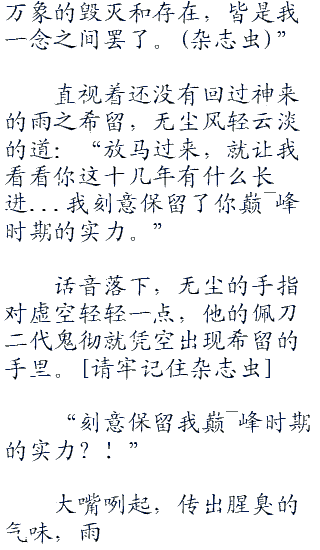 万象的毁灭和存在，皆是我
一念之间罢了。(杂志虫)”
直视着还没有回过神来
的雨之希留，无尘风轻云淡
的道：“放马过来，就让我
看看你这十几年有什么长
进...我刻意保留了你巅¯峰
时期的实力。”
话音落下，无尘的手指
对虚空轻轻一点，他的佩刀
二代鬼彻就凭空出现希留的
手里。[请牢记住杂志虫]
“刻意保留我巅¯峰时期
的实力？！”
大嘴咧起，传出腥臭的
气味，雨